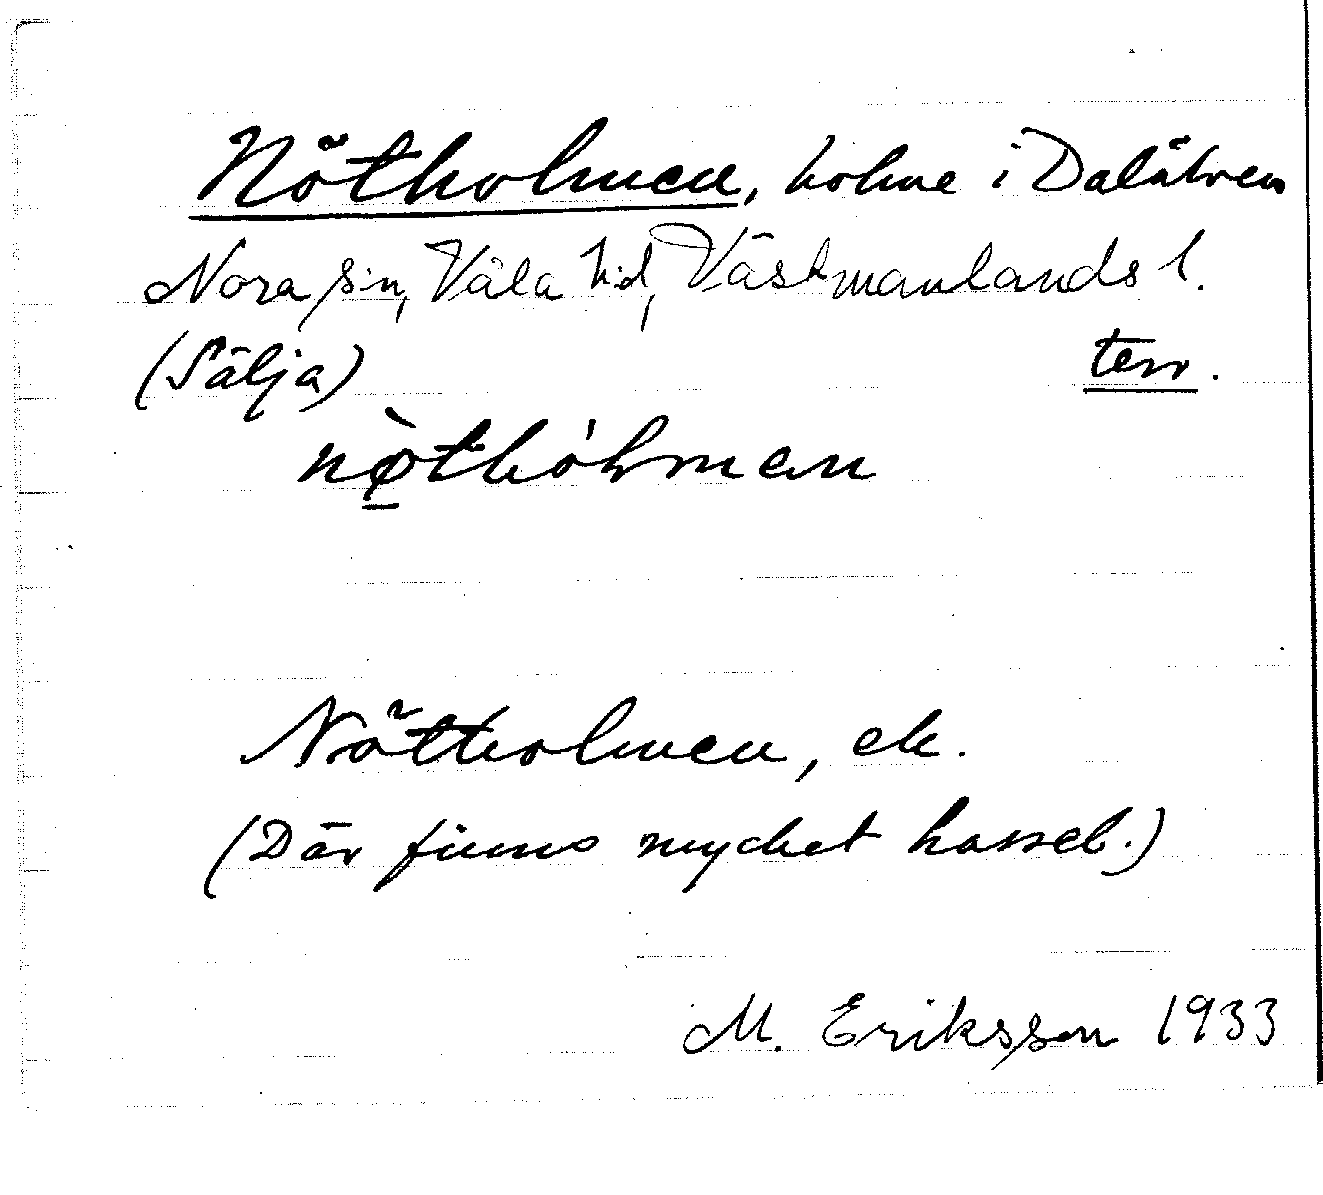 Nötholmen, holme i Dalälven
Nora sn, Våla hd, Västmanlands l.
(Sälja) terr.
nø̀thólman
Nötholmen, ek.
(Där finns mycket hassel.)
M. Eriksson 1933